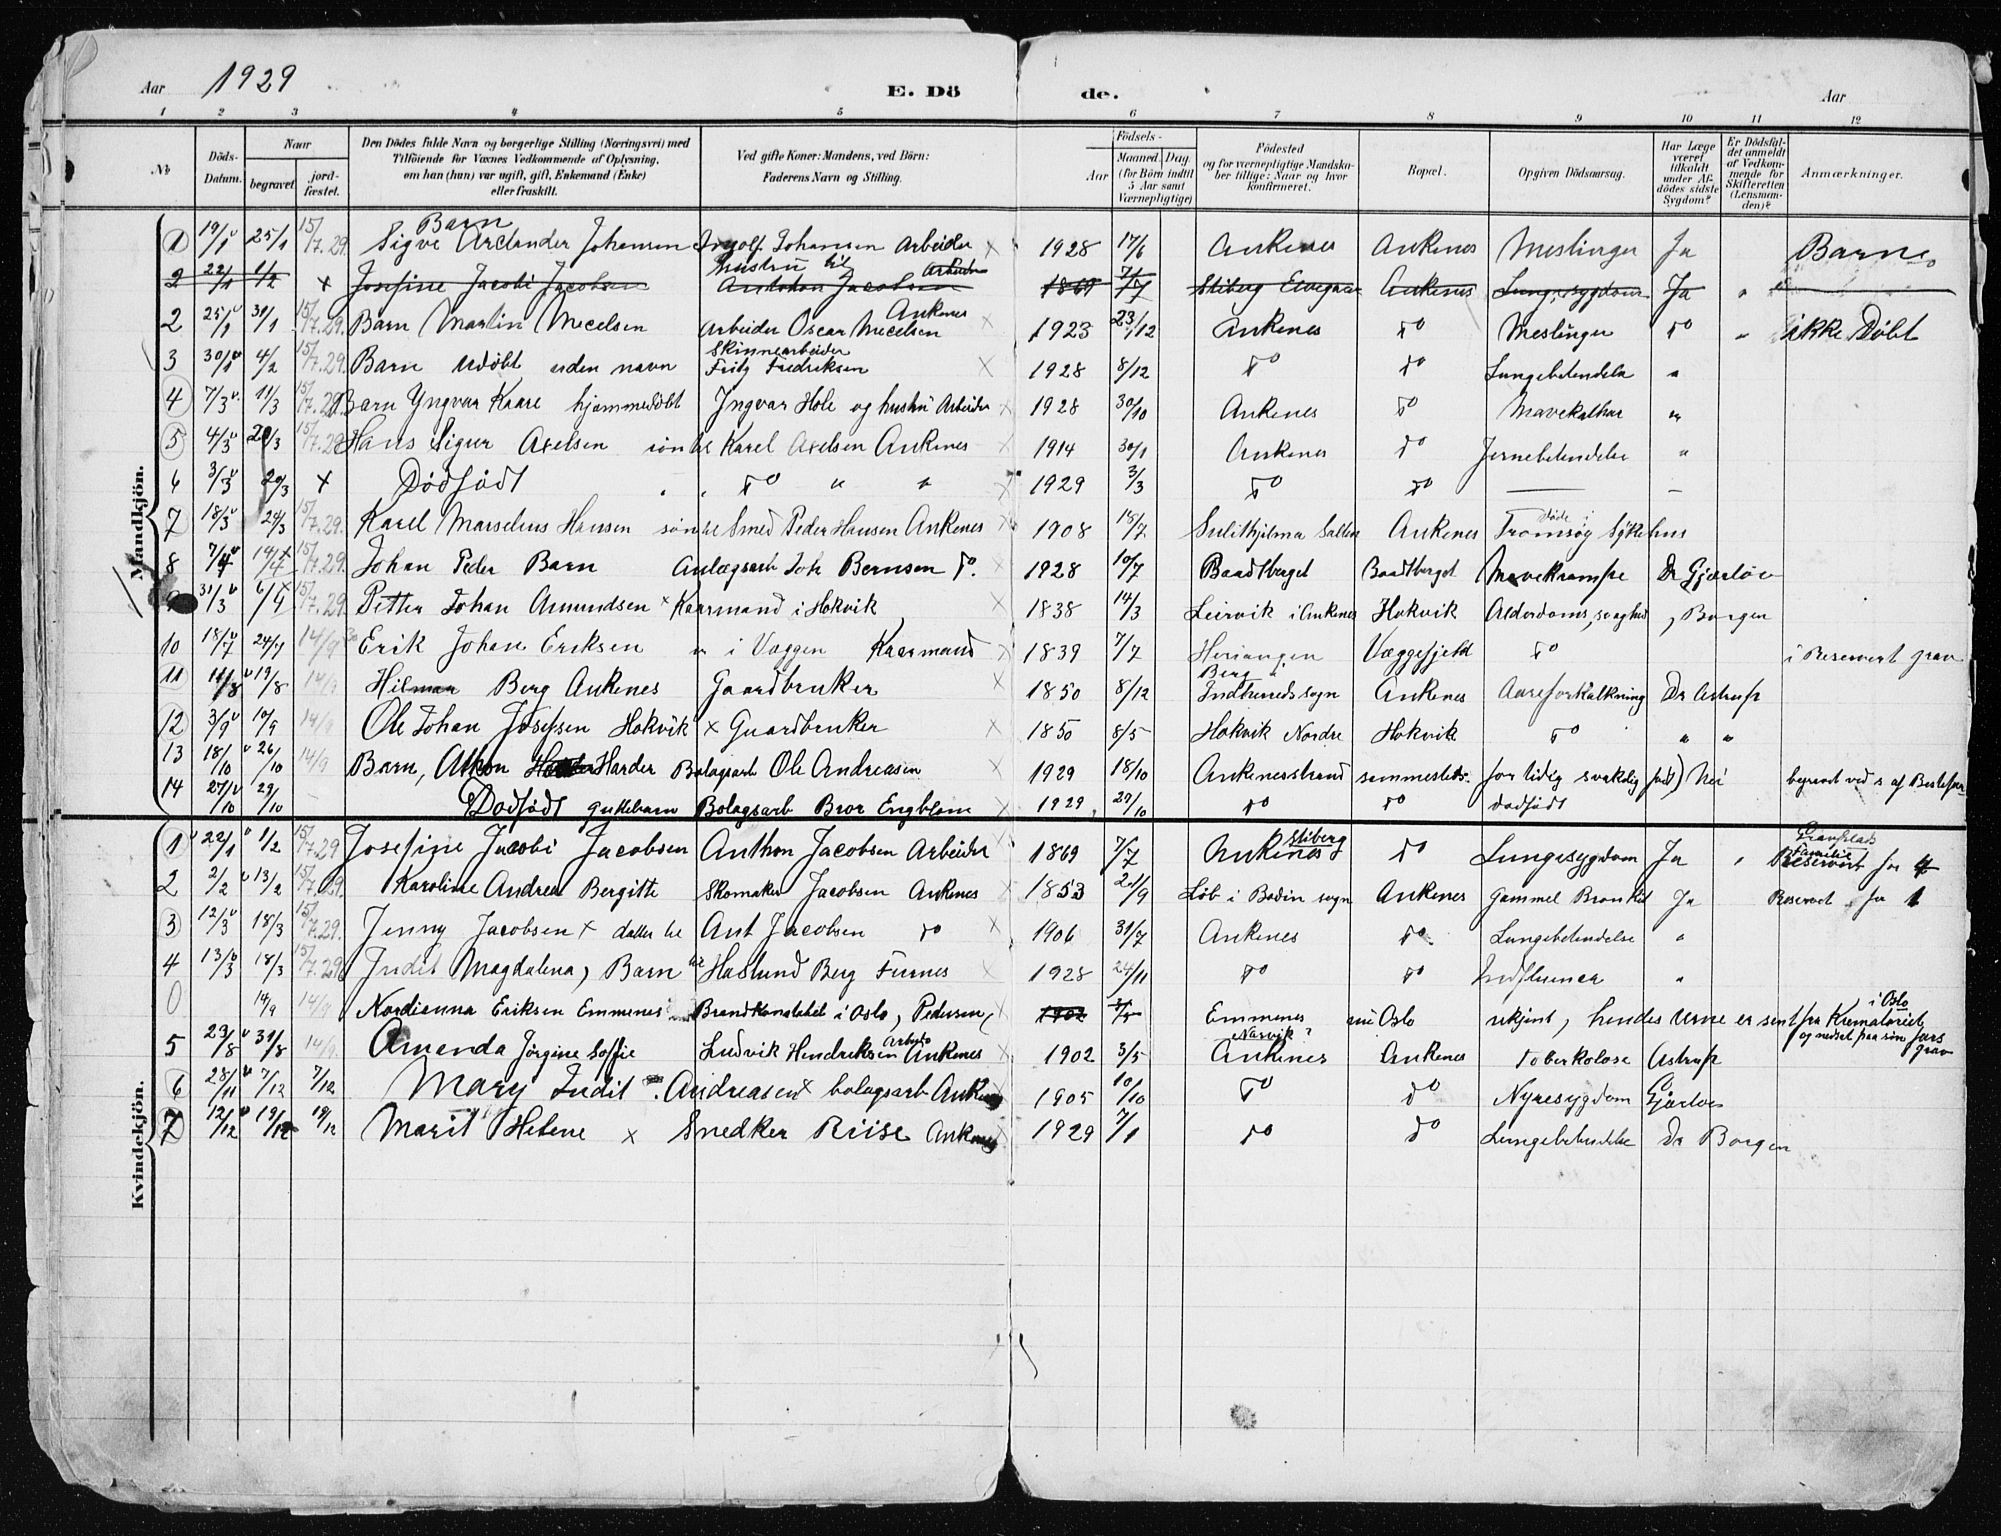 Aar 1929 E. Dö de. Aar
1 2 3 4 5 6 7 8 9 10 11 12
No
Döds-Datum.
Naar
begravet
jord-fæstet.
Den Dödes fulde Navn og borgerlige Stilling (Næringsvei) med
Tilföiende for Voxnes Vedkommende af Oplysning,
om han (hun) var ugift, gift, Enkemand (Enke)
eller fraskilt.
Ved gifte Koner: Mandens, ved Börn:
Faderens Navn og Stilling.
Födsels-
Aar
Maaned. Dag
(for Börn indtil
5 Aar samt
Værnepligtige)
Födested
og for værnepligtige Mandska-
ber tillige: Naar og hvor
konfirmeret.
Bopæl.
Opgiven Dödsaarsag.
Har Læge
været
tilkaldt
under Af-
dödes sidste
Sygdom?
Er Dödsfal-
det anmeldt
af Vedkom-
mende for
Skifteretten
(Lensman-
den)?
Anmærkninger.
Mandkjön.
1 19/1 25/1 15/7.29 Barn Sigve Johansen Ingolf Johansen Arbeider x 1928 17/6 Ankenes Ankenes Meslinger Ja
2 22/1 1/2 x Josefine Jacobi Jacobsen hustru til Jacobsen Arbeider 1869 7/7 Stiberg Ankenes Lungesygdom Ja "
2 25/1 31/1 15/7.29. Barn Martin Mecelsen Arbeider Oscar Mecelsen Ankenes x 1923 23/12 Ankenes Do Meslinger Do " ikke Döbt
3 30/1 4/2 15/7.29. Barn udöbt uden navn Skinnearbeider Fritz Fredriksen x 1928 8/12 Do Do Lungebetendelse "
4 7/3 11/3 15/7.29 Barn Yngvar Kaare hjemmedöbt Ingvar Hole og hustru Arbeider x 1928 30/10 Ankenes Do Mavekathar "
5 4/3 20/3 15/7.29 Hans Sigur Axelsen søn til Karel Axelsen Ankenes x 1914 30/1 Ankenes Do Jernebetendelse "
6 3/3 20/3 x Dödfödt Do " " 1929 3/3 Do Do — –
7 18/3 24/3 15/7.29. Karel Marselius Hansen søn til Smed Peder Hansen Ankenes x 1908 18/7 Sulithjelma Salten Ankenes Döde i Tromsøy Sykehus
8 7/4 14/4 15/7.29. Johan Peder Barn Anlægsarb Joh Bernsen Do. 1928 10/7 Baadtberget Baadtberget Mavekrampe Dr Gjærløv
9 31/3 6/4 15/7.29 Petter Johan Amundsen x Kaarmand i Hokvik x 1838 14/3 Leirvik i Ankenes Hokvik Alderdoms,svaghed , Borgen
10 18/7 24/7 14/9 Erik Johan Eriksen " i Væggen Kaarmand x 1839 7/7 Herjangen Væggefjeld Do i Reservert grav
11 11/8 19/8 14/9 Hilmar Berg Ankenes Gaardbruker x 1850 8/12 Berg i Indherreds sogn Ankenes Aareforkalkning Dr Astrup
12 3/9 10/9 14/9 Ole Johan Josefsen Hokvik x Guardbruker x 1850 8/5 Hokvik Nordre Hokvik Do " "
13 18/10 26/10 14/9 Barn, Harder Bolagsarb Ole Andreasen 1929 18/10 Ankenesstrand sammesteds. for tidlig svakelig født) Nei begravt ved s af Bestefar
14 27/10 29/10 — Dodfödt guttebarn Bolagsarb Bror Engblom x 1929 27/10 Do Do dødfödt
Kvindekjön.
1 22/1 1/2 15/7.29 Josefine Jacobi Jacobsen Anthon Jacobsen Arbeider 1869 7/7 Ankenes Stiberg Do Lungesygdom Ja " Gravplads Familie Reservert for 4
2 2/2 13/2 15/7.29. Karoline Andrea Bergitte Skomaker Jacobsen Ankenes x 1853 21/9 Löb i Bodin sogn Ankenes Gammel Bronkit Ja Reservert for 1
3 12/3 18/3 15/7.29. Jenny Jacobsen x datter til Ant Jacobsen Do x 1906 31/7 Ankenes Do. Lungebetendelse "
4 13/3 18/3 15/7.29 Judit Magdalena, Barn til Haslund Berg Furnes x 1928 24/11 Do Do Influensa "
0 14/9 14/9 Nordianna Eriksen Emmenes Brandkonstabel i Oslo, Pedersen, x 1902 3/5 Emmenes Oslo ukjent, hendes Urne er sent fra Krematoriet i Oslo og nedsat paa sine fars grav
5 23/8 31/8 14/9. Amanda Jörgine Soffie Ludvik Hendriksen Arbeider Ankenes x 1902 3/5 Narvik? Ankenes Ankenes Toberkolose Astrup
6 28/11 7/12 7/12 Mary Indit Andreasen x bolagsarb Ankenes 1905 10/10 Do Do Nyresygdom Gjærløv
7 12/12 19/12 19/12 Marit Helene x Snedker Riise Ankenes 1929 7/1 Do Do Lungebetendelse Dr Borgen